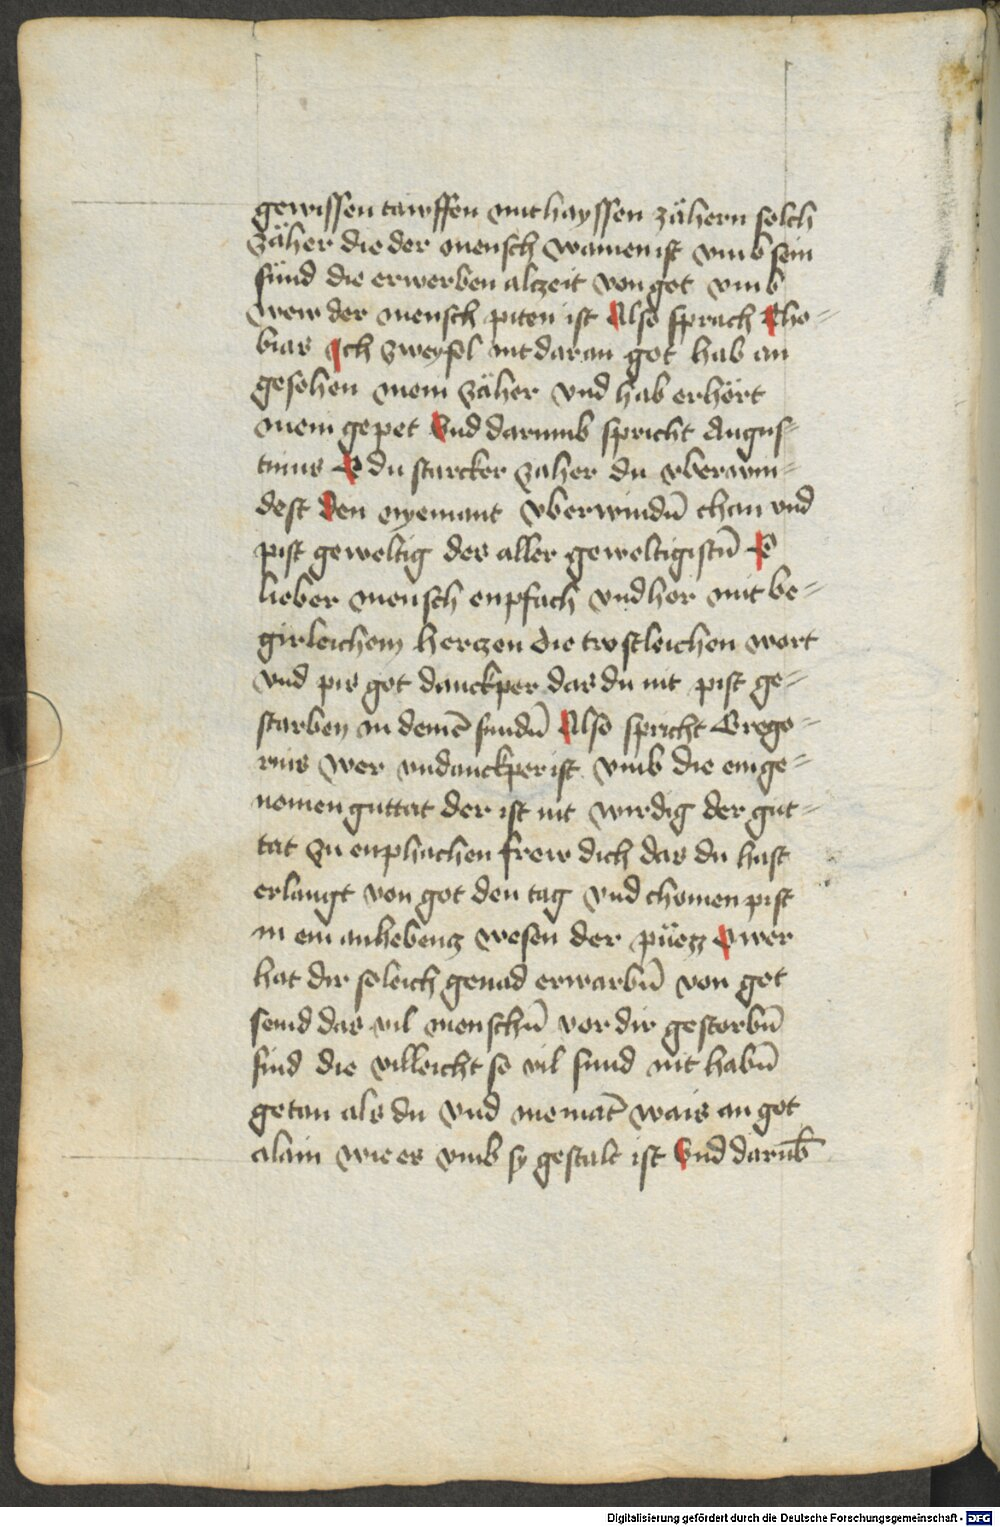 gewissen tawffen mit hayssen zähern solch
zäher die der mensch wainen ist vmb sein
sünd die erwerben alczeit von got vmb
wew der mensch piten ist Also sprach Tho=
bias Ich zweyfel nit daran got hab an
gesehen mein zäher vnd hab erhört
mein gepet Vnd darumb spricht Augus=
tinus O du starcker zaher du vberwin=
dest den nyemant vberwindn̄ chan vnd
pist geweltig des aller geweltigistn̄ O
lieber mensch enpfach vnd hor mit be=
girleichem herczen die trostleichen wort
vnd pis got danckper das du nit pist ge=
starben in deinē sundn̄ Also spricht Grego=
rius wer vndanckper ist vmb die einge=
nomen guttat der ist nit wirdig der gut=
tat zu enphachen frew dich das du hast
erlangt von got den tag vnd chomen pist
in ein anhebencz wesen der püezz O wer
hat dir soleich genad erwarbn̄ von got
seind das vil menschn̄ vor dir gestorbn̄
sind die villeicht so vil sund nit habn̄
getan als du vnd niemāt wais an got
alain wie es vmb sy gestalt ist Vnd darūb